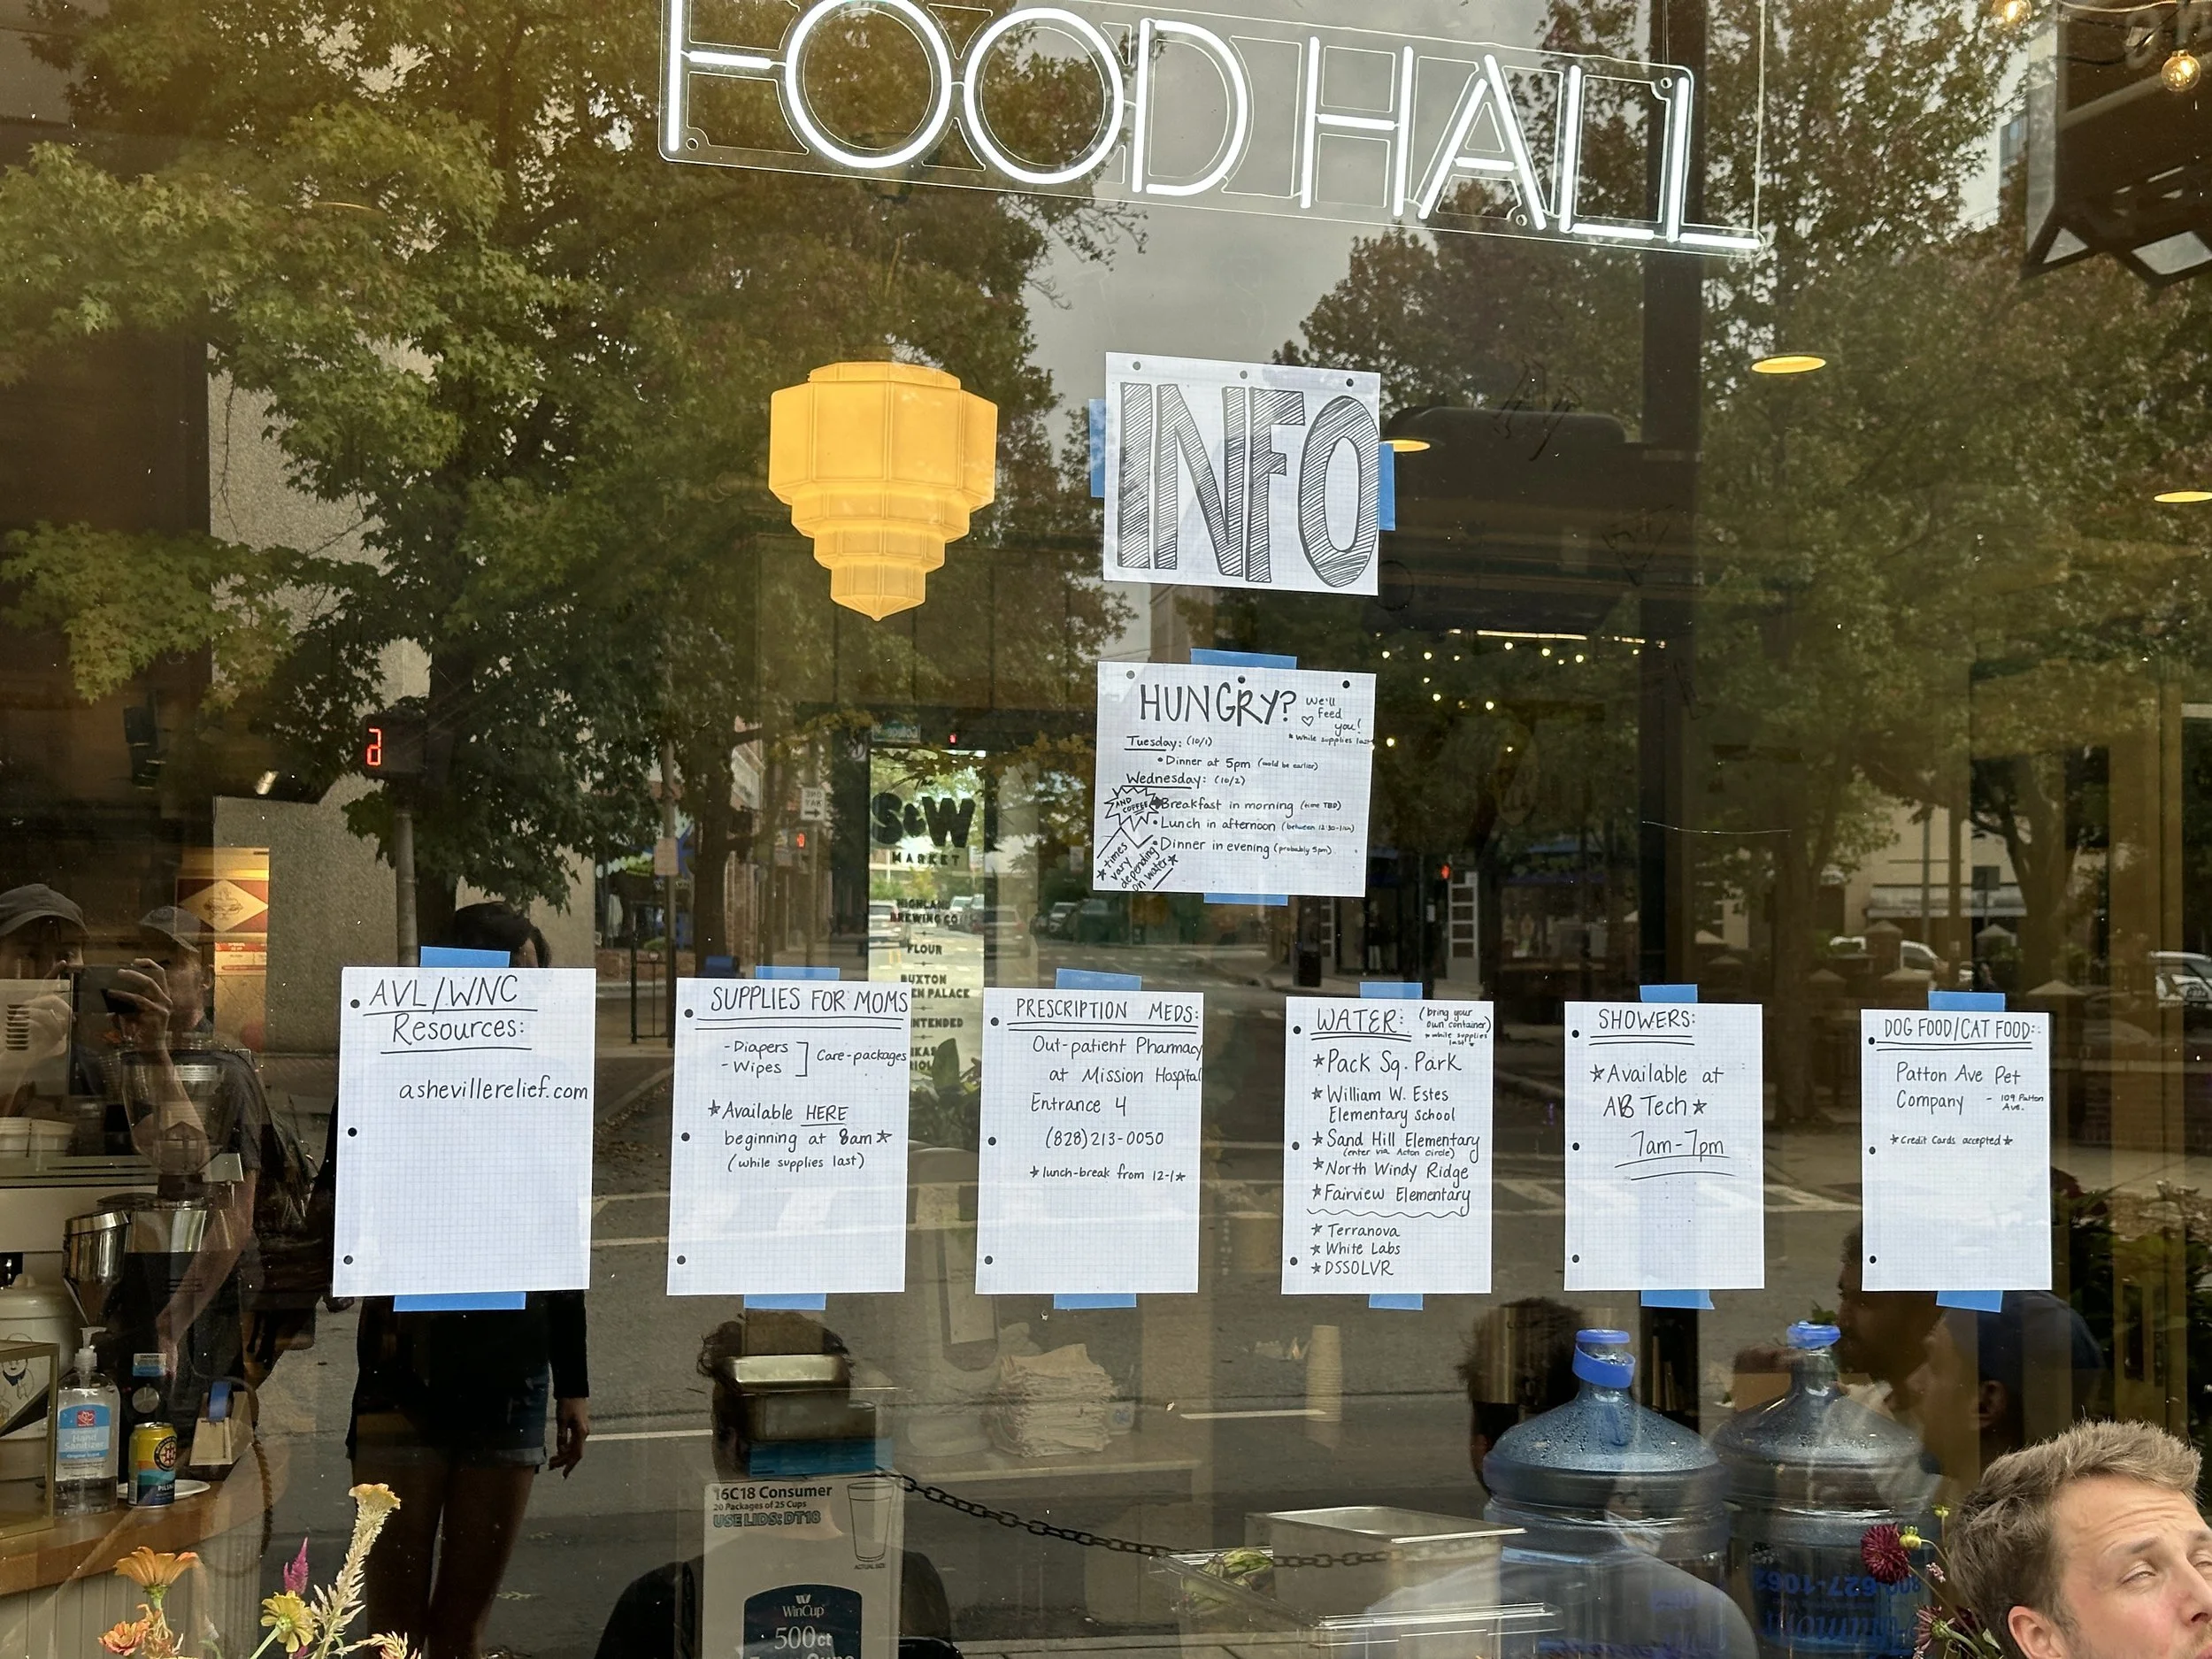 FOOD HALL
INFO
HUNGRY?
We'll
feed
you!
*while supplies last
Tuesday: (10/1)
• Dinner at 5pm (could be earlier)
Wednesday: (10/2)
AND
COFFEE
• Breakfast in morning (time TBD)
• Lunch in afternoon (between 12:30-1ish)
• Dinner in evening (probably 5pm)
* times
vary
depending
on water *
S&W
MARKET
HIGHLAND
BREWING CO
FLOUR
BUXTON
EN PALACE
NTENDED
AVL/WNC
Resources:
ashevillerelief.com
SUPPLIES FOR MOMS
- Diapers
- Wipes
Care-packages
*Available HERE
beginning at 8am*
(while supplies last)
PRESCRIPTION MEDS:
Out-patient Pharmacy
at Mission Hospital
Entrance 4
(828)213-0050
*lunch-break from 12-1*
WATER:
(bring your
own container)
*while supplies
last*
*Pack Sq. Park
*William W. Estes
Elementary School
*Sand Hill Elementary
(enter via Acton circle)
*North Windy Ridge
*Fairview Elementary
*Terranova
*White Labs
*DSSOLVR
SHOWERS:
*Available at
AB Tech*
7am-7pm
DOG FOOD/CAT FOOD:
Patton Ave Pet
Company - 109 Patton
Ave.
*Credit Cards accepted*
Hand
Sanitizer
16C18 Consumer
20 Packages of 25 Cups
USE LIDS: DT18
ACTUAL SIZE
WinCup
500ct